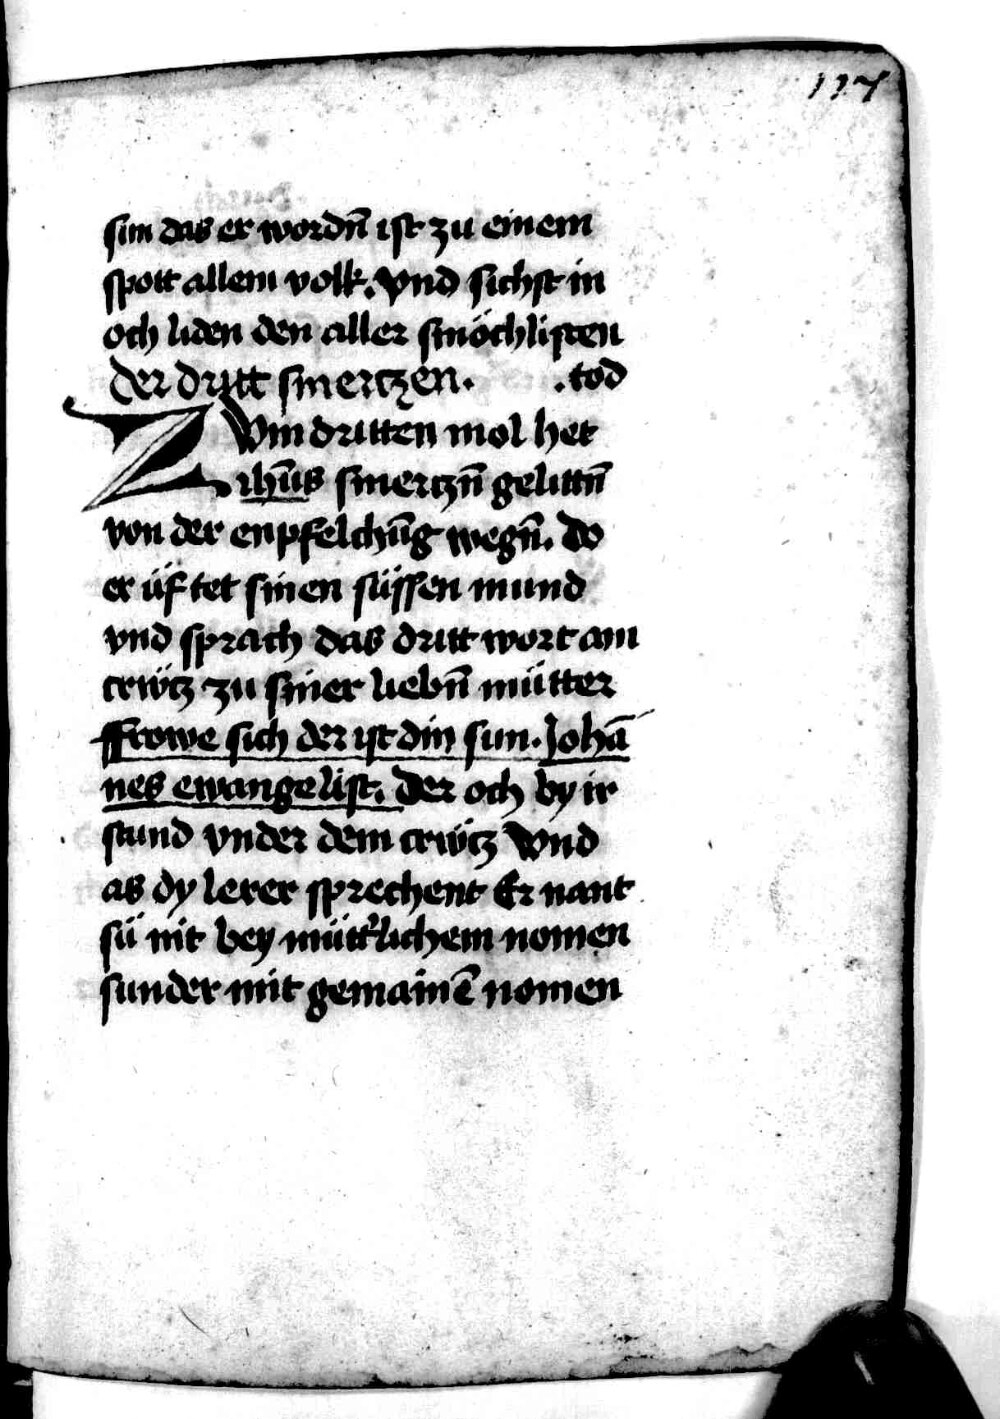 117
sim das er wordn̄ ist zu einem
spott allem volk. vnd sichst in
och liden den aller smöchlisten
der dritt smertzen. .tod
Zvm dritten mol het
ih̄us smertzn̄ gelittn̄
von der enpfelchūg wegn̄. do
er üf tet sinen süssen mund
vnd sprach das dritt wort am
crütz zu siner liebn̄ mütter
ffrowe sich der ist din sun. Johā
nes ewangelist. der och by ir
stund vnder dem crütz vnd
as dy lerer sprechent Er nant
sü nit bey mütt'lichem nomen
sunder mit gemainē nomen